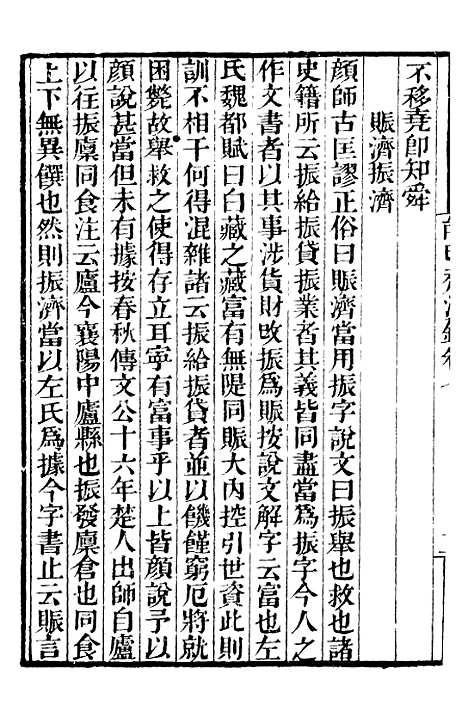 不移堯即知舜
賑濟振濟
顏師古匡謬正俗曰賑濟當用振字說文曰振舉也救也諸
史籍所云振給振貸振業者其義皆同盡當爲振字今人之
作文書者以其事涉貨財改振爲賑按說文解字云富也左
氏魏都賦曰白藏之藏富有無隄同賑大內控引世資此則
訓不相干何得混雜諸云振給振貸者並以饑饉窮厄將就
困斃故舉救之使得存立耳寧有富事乎以上皆顏說予以
顏說甚當但未有據按春秋傳文公十六年楚人出師自廬
以往振廩同食注云廬今襄陽中廬縣也振發廩倉也同食
上下無異饌也然則振濟當以左氏爲據今字書止云賑言